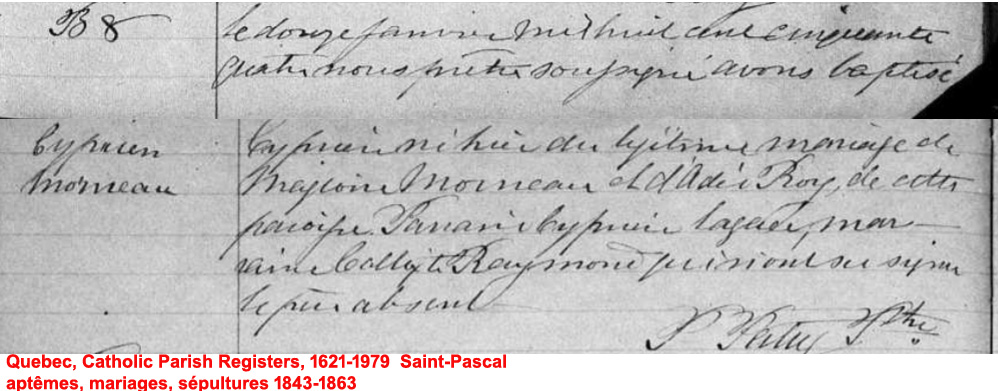 B 8
le douze janvier mil huit cent cinquante
quatre nous prêtre soussigné avons baptisé
Cyprien
Morneau
Cyprien né hier du légitime mariage de
Magloire Morneau et d'Adèle Roy, de cette
paroisse. Parrain Cyprien Lagacé, mar-
raine Calixte Raymond qui n'ont su signer
le père absent
P. Patry Ptre
Quebec, Catholic Parish Registers, 1621-1979 Saint-Pascal
aptêmes, mariages, sépultures 1843-1863